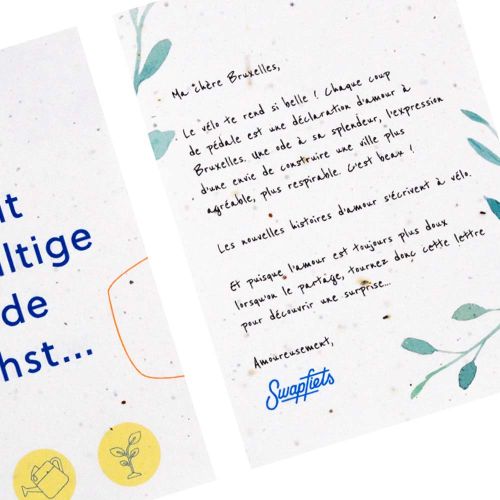 it
altige
de
hst...
Ma chère Bruxelles,
Le vélo te rend si belle ! Chaque coup
de pédale est une déclaration d'amour à
Bruxelles. Une ode à sa splendeur, l'expression
d'une envie de construire une ville plus
agréable, plus respirable. C'est beau !
Les nouvelles histoires d'amour s'écrivent à vélo.
Et puisque l'amour est toujours plus doux
lorsqu'on le partage, tournez donc cette lettre
pour découvrir une surprise...
Amoureusement,
Swapfiets